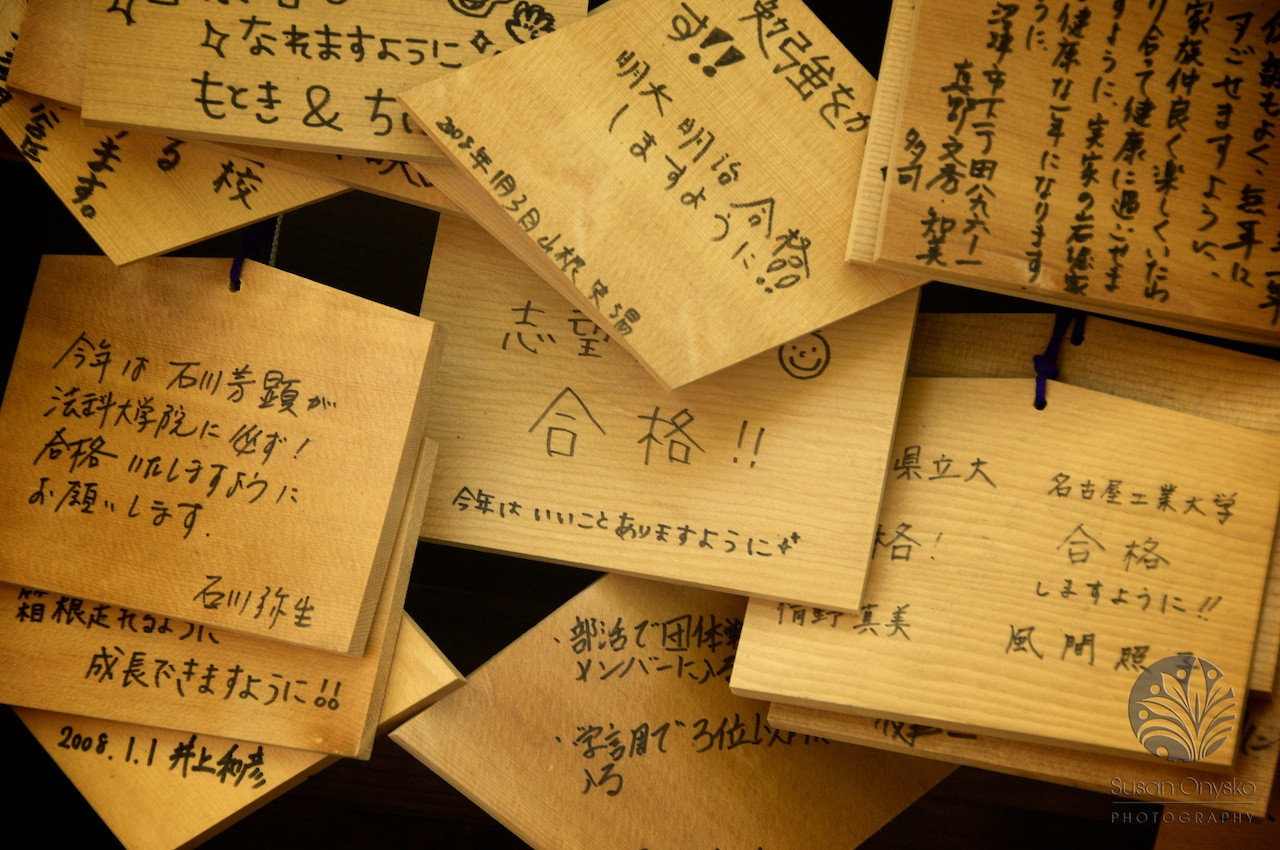 なれますように
もとき & ち
ます。
る校
勉強をが
す!!
明大明治合格
しますように!!
2008年1月3日 山根
すごせますように、
家族仲良く楽しく、いたわ
り合って健康に過ごせま
すように、実家の石堀家
も健康な一年になります
ように
真野
知美
今年は石川芳顕が
法科大学院に必ず!
合格いたしますように
お願いします.
石川弥生
箱根走れるように
成長できますように!!
2008.1.1 井上和彦
志望
合格!!
今年はいいことありますように
県立大
格!
真美
名古屋工業大学
合格
しますように!!
風間照
・部活で団体
メンバーに入ろ
・学言用で3位以
入る
Susan Onysko
PHOTOGRAPHY